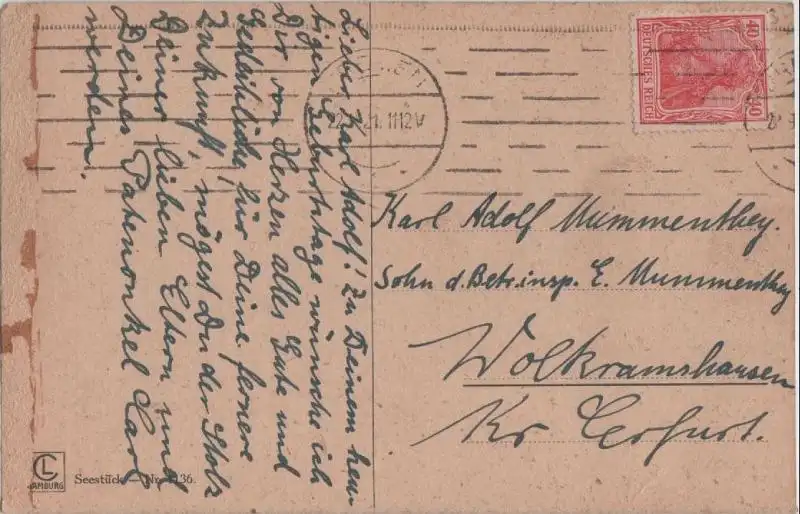 Lieber Karl Adolf! Zu Deinem heu-
tigen Geburtstage wünsche ich
Dir von Herzen alles Gute und
Gedeihliche für Deine fernere
Zukunft, mögest Du der Stolz
Deiner lieben Eltern und
Deines Patenonkel Carl
werden.
40 40
DEUTSCHES REICH
21.1112V
Karl Adolf Mummenthey.
Sohn d. Betr.insp. E. Mummenthey
Wolkramshausen
Kr Erfurt.
CL
HAMBURG
Seestück — Nr. 1136.